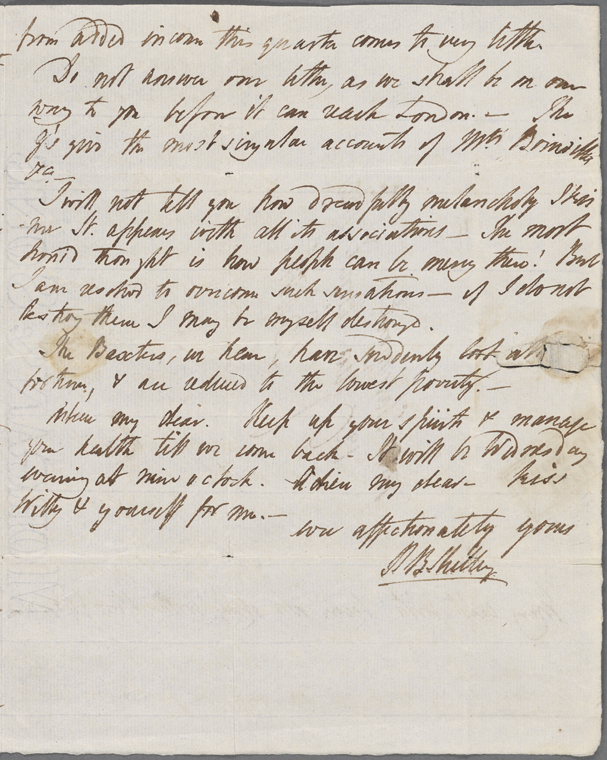 from added income this quarter comes to very little
Do not answer our letter, as we shall be on our
way to you before it can reach London. — The
G's give the most singular accounts of Mrs Boinville
&c
I will not tell you how dreadfully melancholy
me It appears with all its associations — The most
horrid thought is how people can be merry there! But
I am resolved to overcome such sensations — if I do not
destroy them I may be myself destroyed.
The Baxters, we hear, have suddenly lost all
fortune, & are reduced to the lowest poverty —
Adieu my dear. Keep up your spirits & manage
your health till we come back — It will be Wednesday
evening at nine o clock. Adieu my dear — kiss
Willy & yourself for me. —
ever affectionately yours
PBShelley